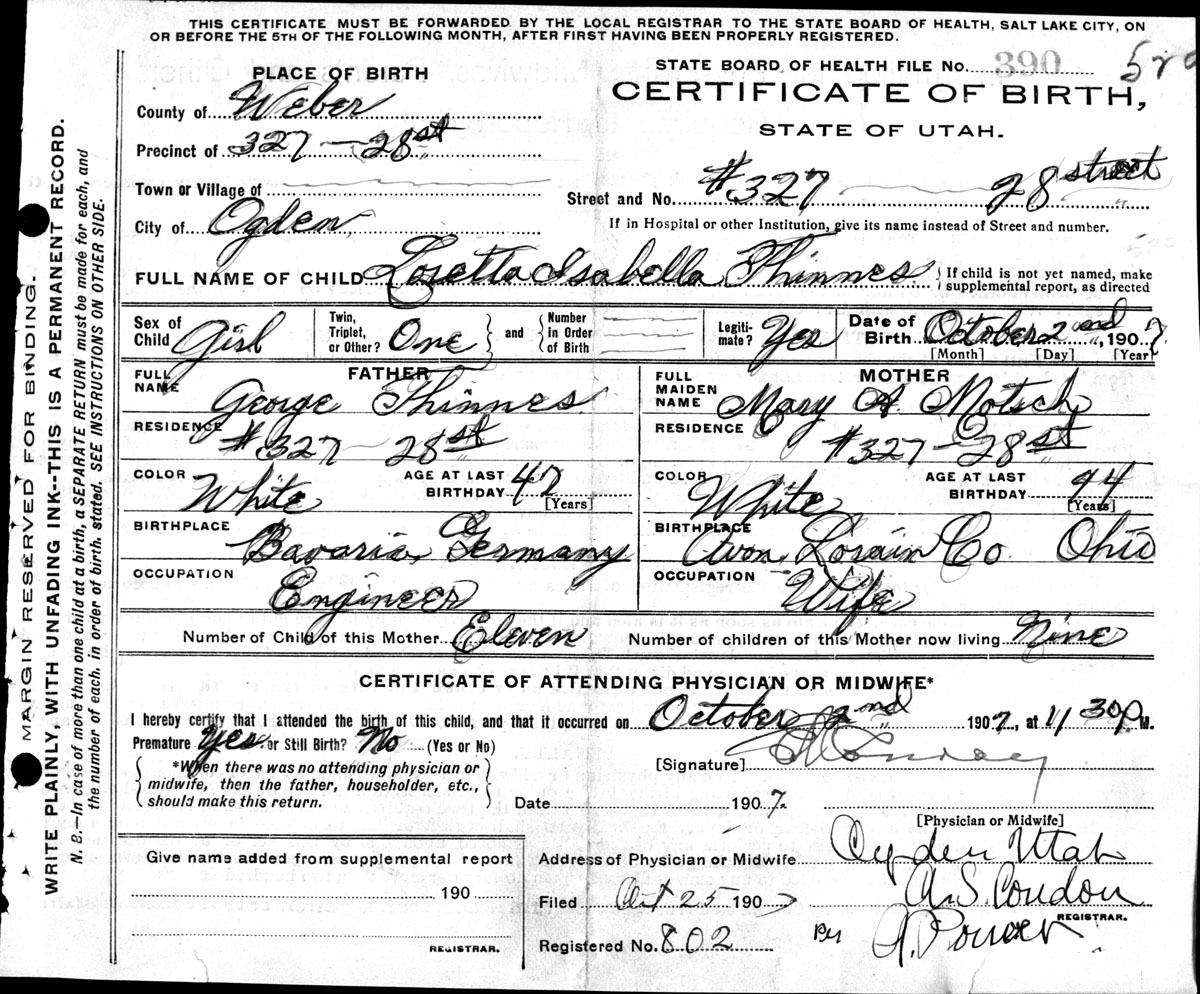 THIS CERTIFICATE MUST BE FORWARDED BY THE LOCAL REGISTRAR TO THE STATE BOARD OF HEALTH, SALT LAKE CITY, ON
OR BEFORE THE 5TH OF THE FOLLOWING MONTH, AFTER FIRST HAVING BEEN PROPERLY REGISTERED.
MARGIN RESERVED FOR BINDING.
WRITE PLAINLY, WITH UNFADING INK--THIS IS A PERMANENT RECORD.
N. B.—In case of more than one child at a birth, a SEPARATE RETURN must be made for each, and
the number of each, in order of birth, stated. SEE INSTRUCTIONS ON OTHER SIDE.
PLACE OF BIRTH
County of Weber
Precinct of 327 - 28st
Town or Village of
City of Ogden
STATE BOARD OF HEALTH FILE NO. 390
CERTIFICATE OF BIRTH,
STATE OF UTAH.
Street and No. #327 28 street
If in Hospital or other Institution, give its name instead of Street and number.
FULL NAME OF CHILD Loretta Isabella Thinnes { If child is not yet named, make
supplemental report, as directed
Sex of Child Girl
Twin, Triplet, or Other? One } and { Number in Order of Birth
Legitimate? Yes
Date of Birth October 2nd, 1907
[Month] [Day] [Year]
FATHER
FULL NAME George Thinnes
RESIDENCE #327 - 28st
COLOR White AGE AT LAST BIRTHDAY 47 [Years]
BIRTHPLACE Bavaria, Germany
OCCUPATION Engineer
MOTHER
FULL MAIDEN NAME Mary A. Motsch
RESIDENCE #327 - 28st
COLOR White AGE AT LAST BIRTHDAY 44 [Years]
BIRTHPLACE Avon, Lorain Co. Ohio
OCCUPATION Wife
Number of Child of this Mother Eleven Number of children of this Mother now living Nine
CERTIFICATE OF ATTENDING PHYSICIAN OR MIDWIFE*
I hereby certify that I attended the birth of this child, and that it occurred on October 2nd 1907, at 11 30 P M.
Premature Yes or Still Birth? No (Yes or No)
{ *When there was no attending physician or
midwife, then the father, householder, etc.,
should make this return. }
[Signature]
Date 1907.
[Physician or Midwife]
Give name added from supplemental report
190
REGISTRAR.
Address of Physician or Midwife Ogden Utah
Filed Oct 25 1907 A.S. Condon
REGISTRAR.
Registered No. 802 By